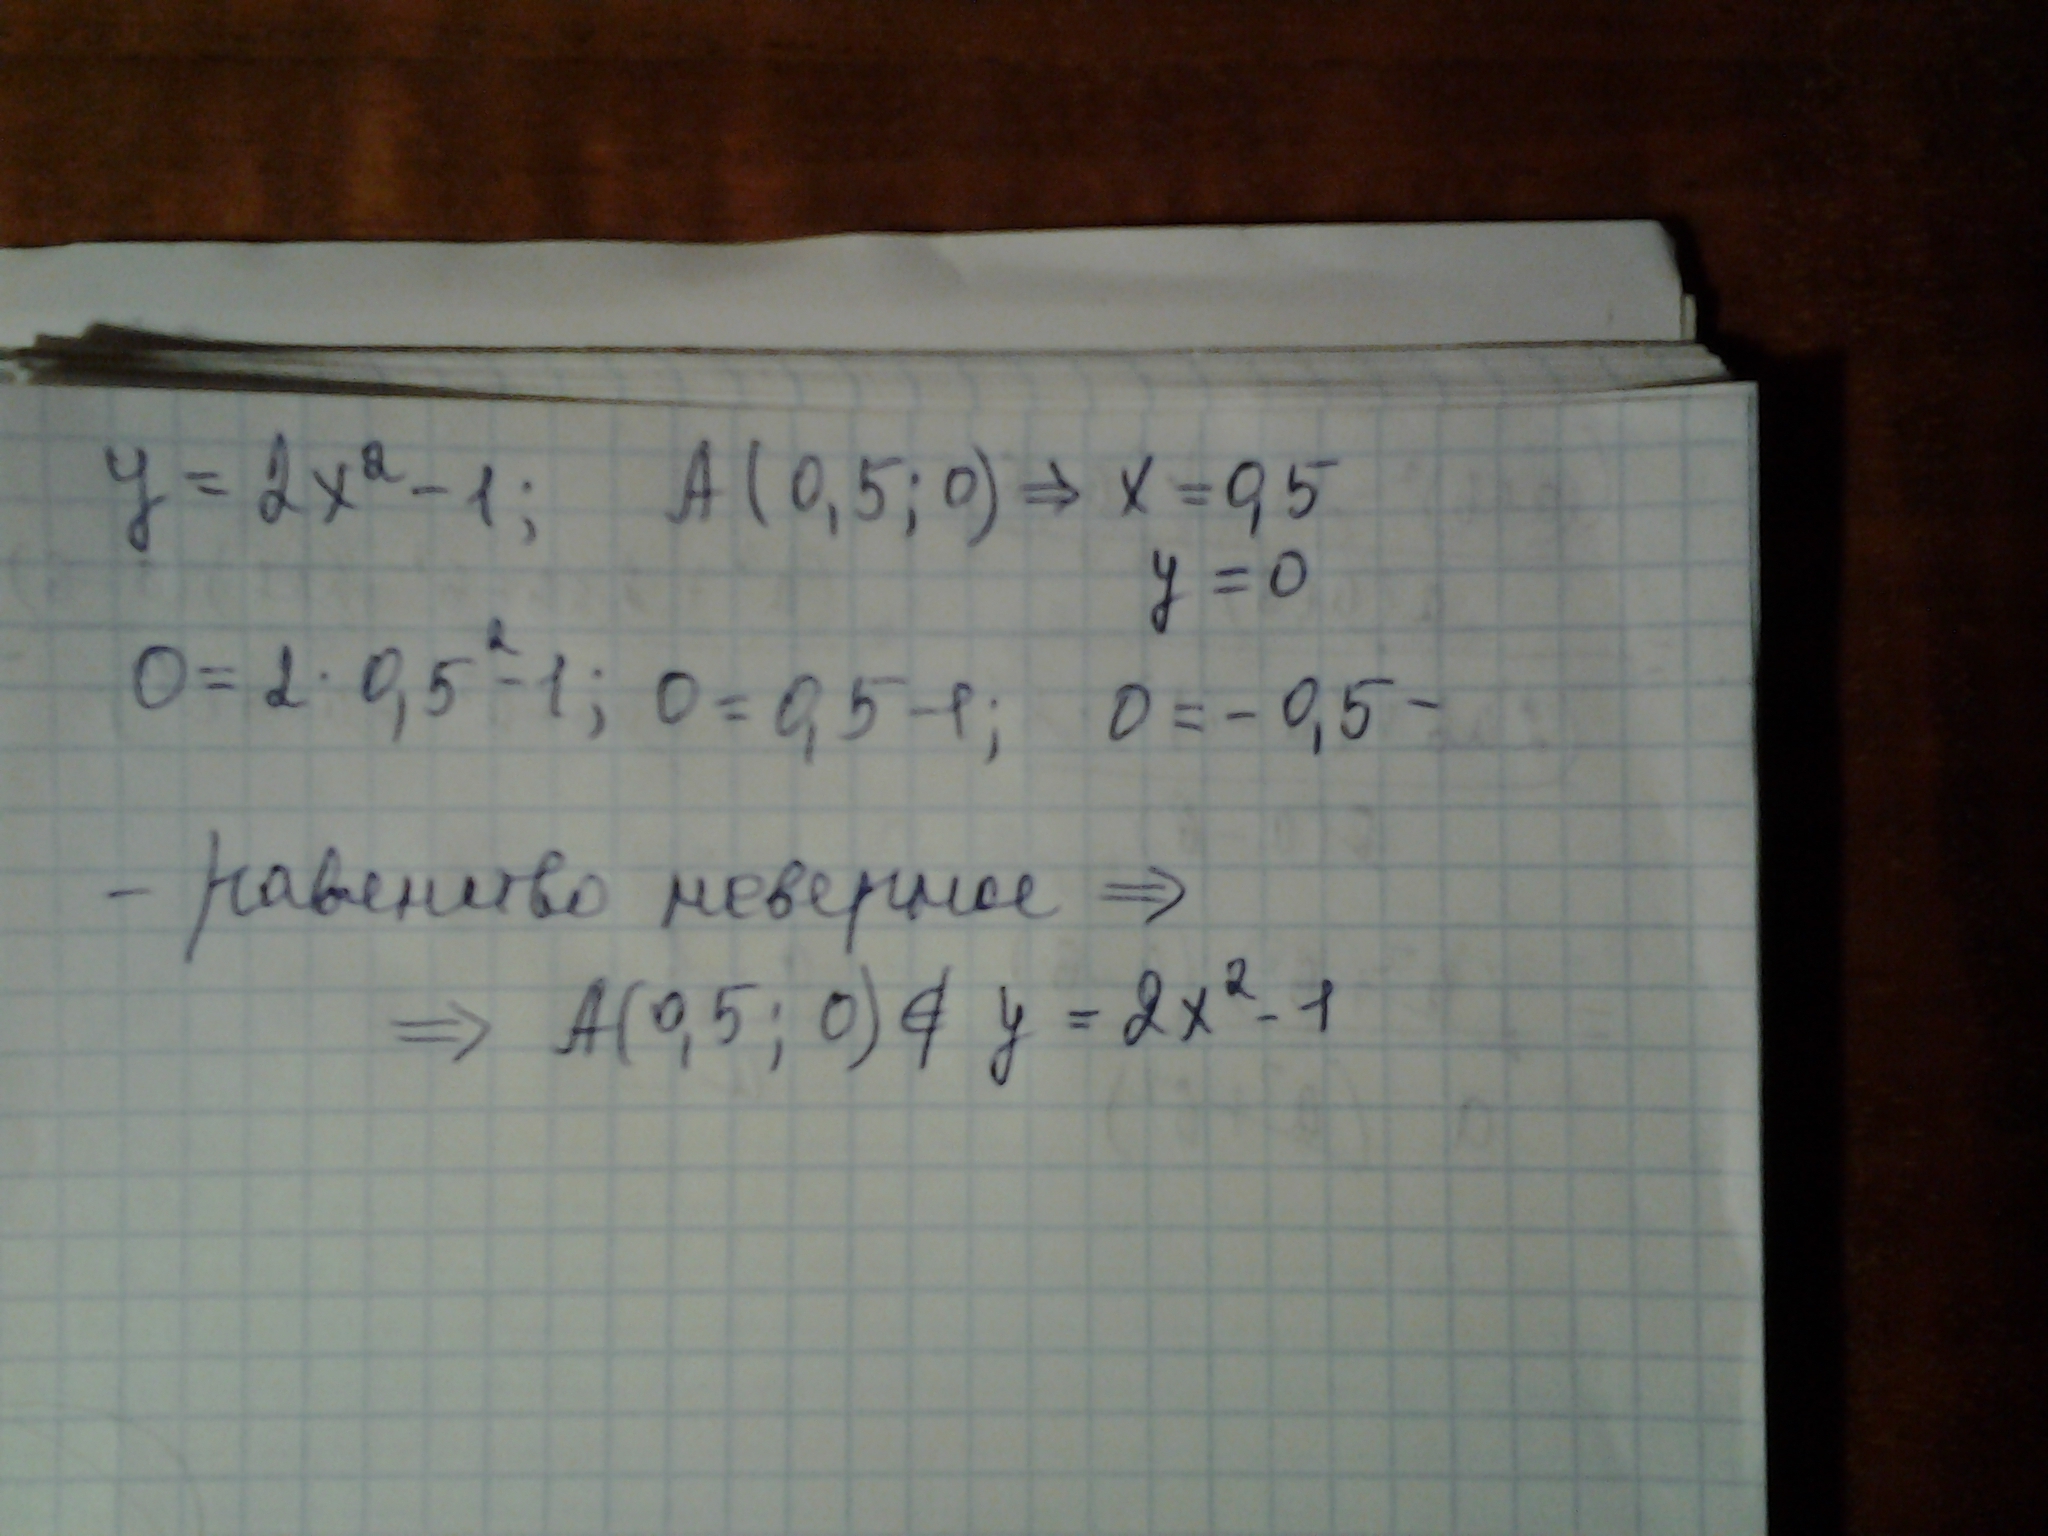 y = 2x² - 1; A(0,5; 0) ⇒ x = 0,5
y = 0
0 = 2 · 0,5² - 1; 0 = 0,5 - 1; 0 = - 0,5 -
- равенство неверное ⇒
⇒ A(0,5; 0) ∉ y = 2x² - 1